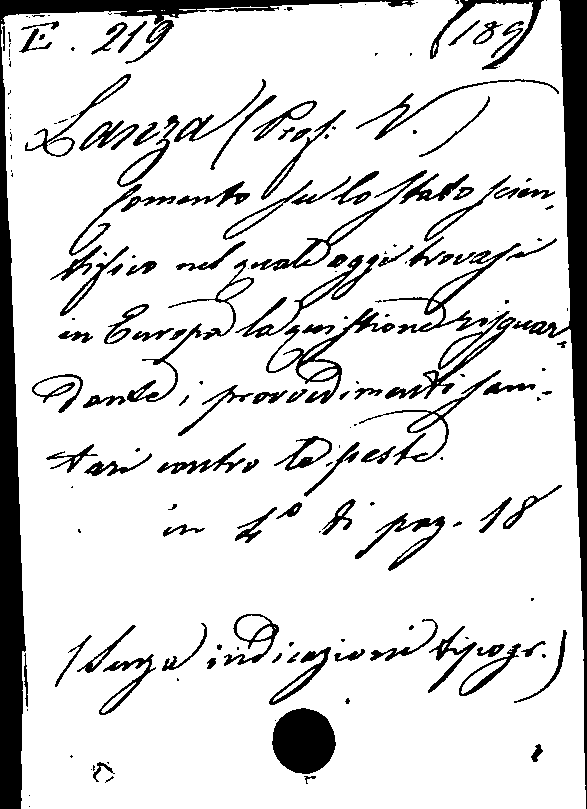 E. 219 (189)
Lanza (Prof. V.)
Comento su lo stato scien-
tifico nel quale oggi trovasi
in Europa la quistione risguar-
dante i provvedimenti sani-
tari contro la peste.
in 4º di pag. 18
(Senza indicazioni tipogr.)